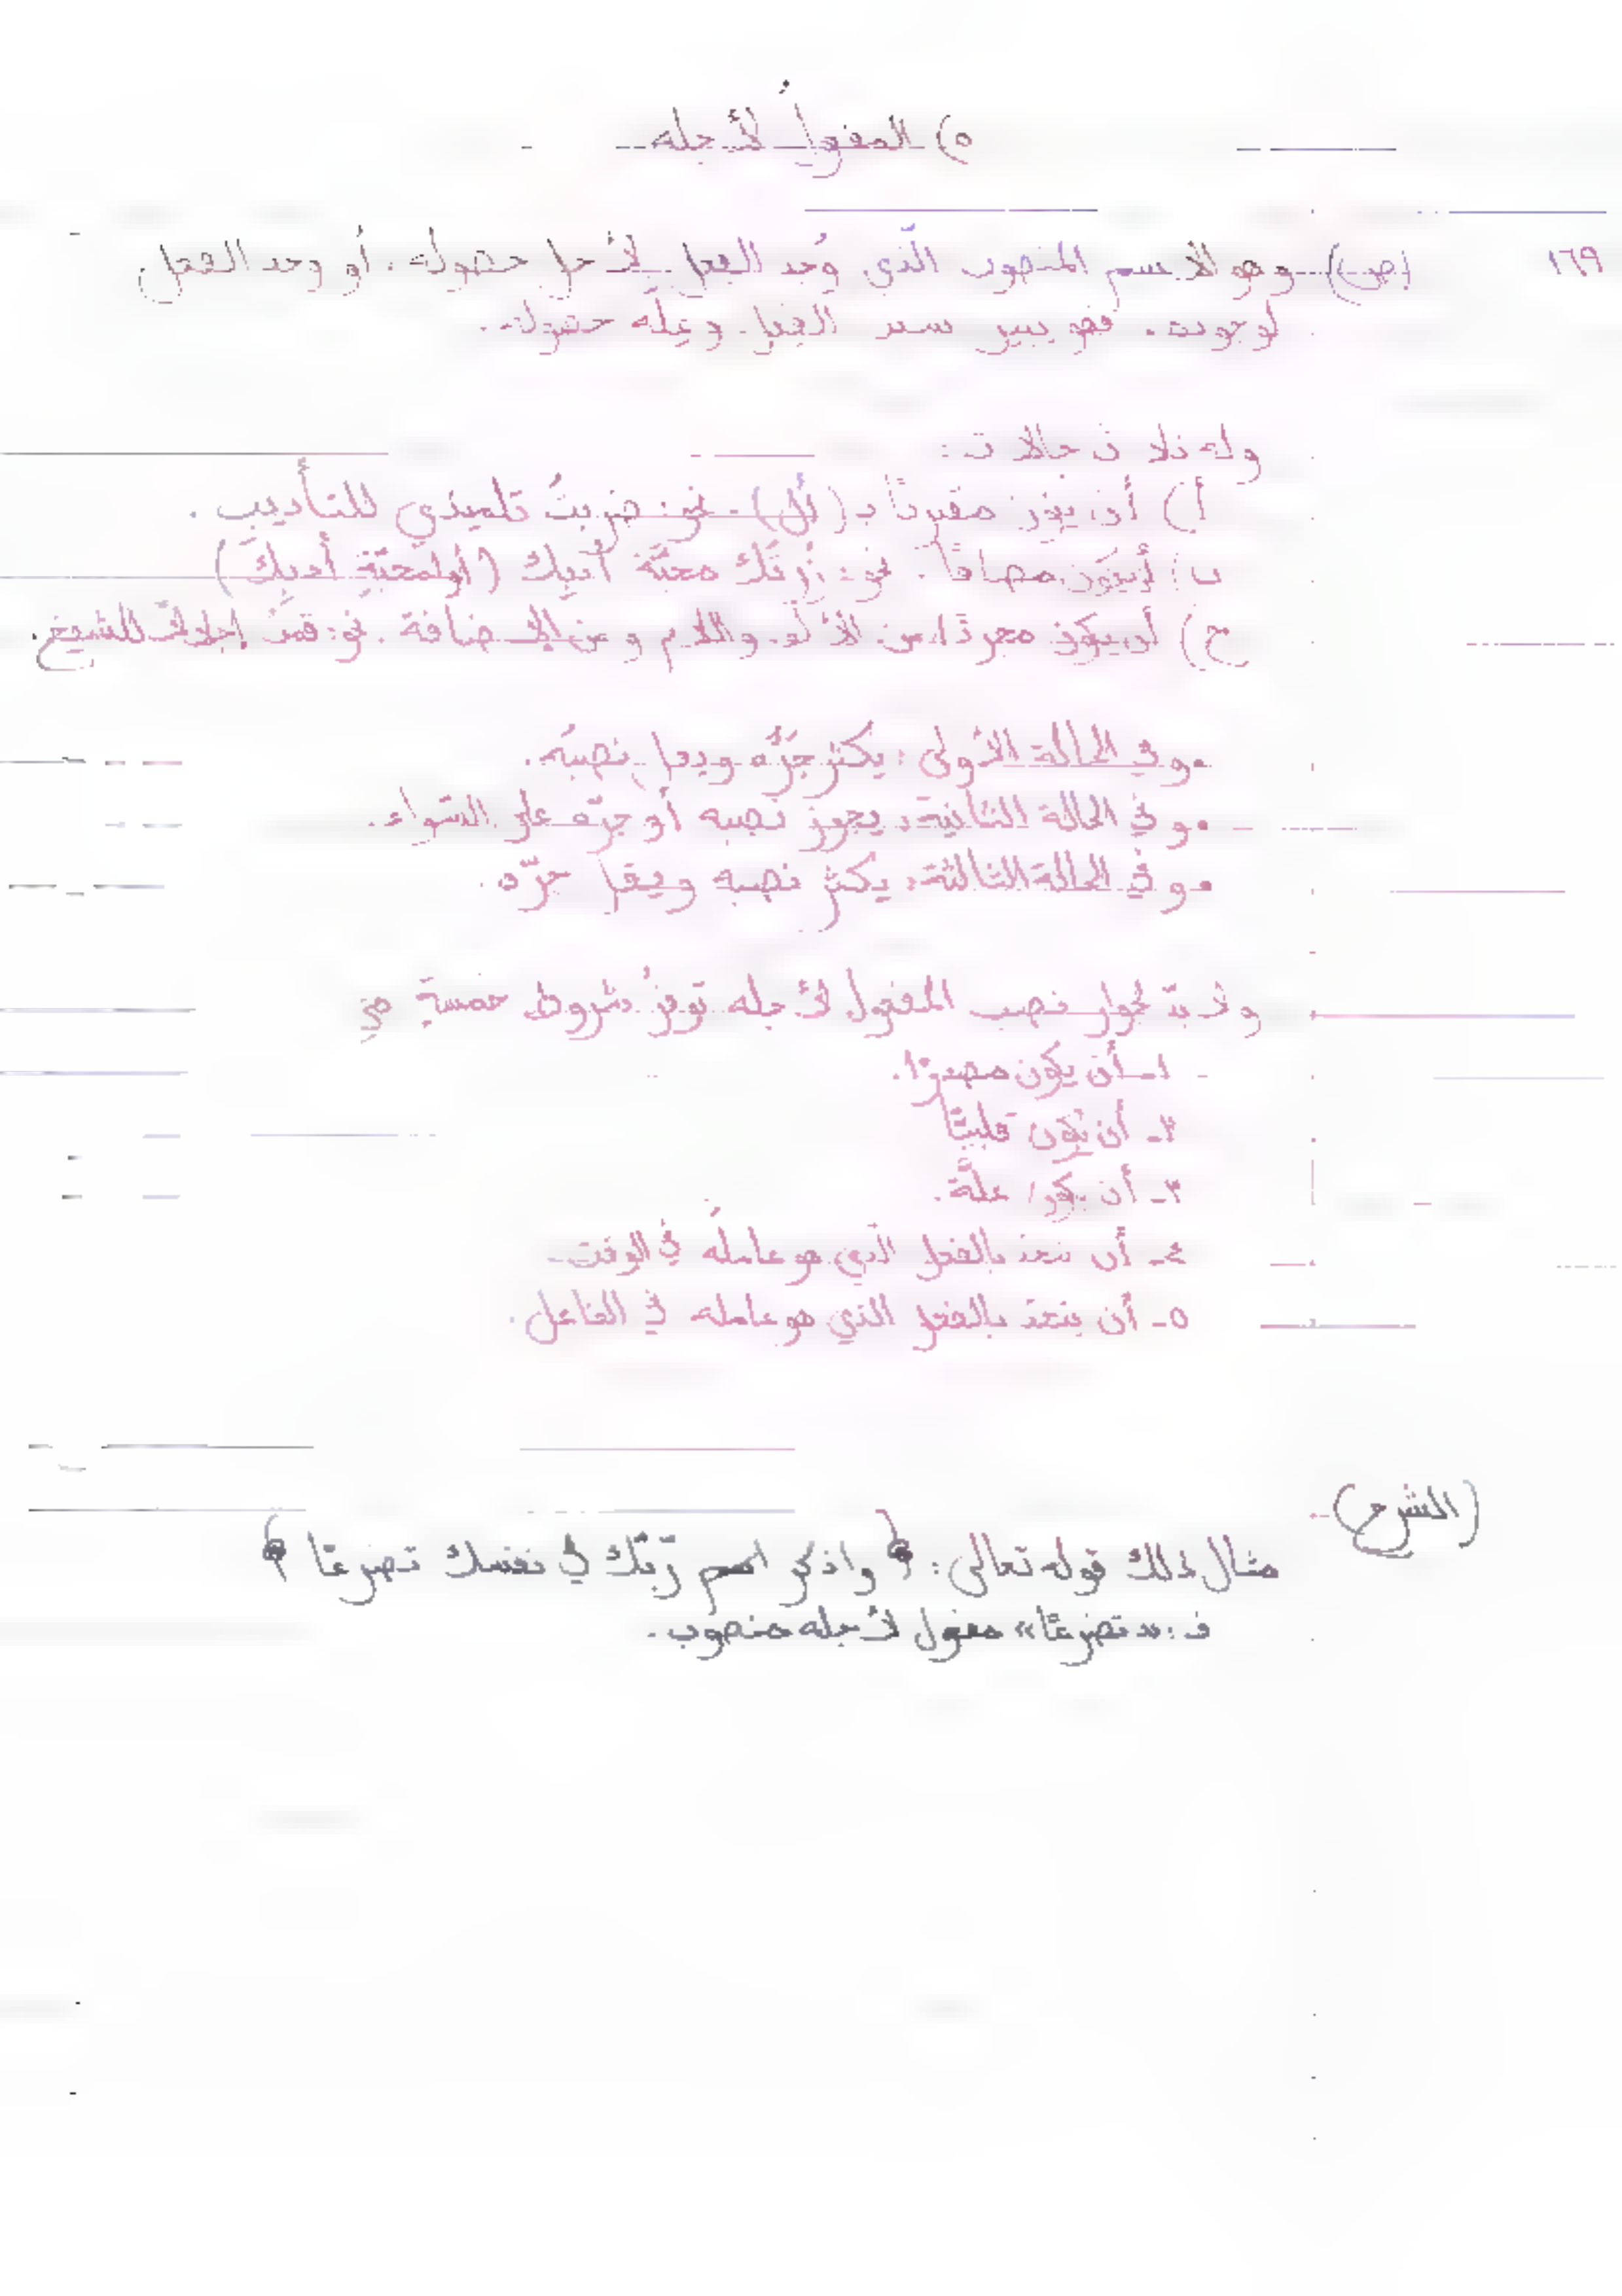 ٥) المفعولُ لأجله
١٦٩ (ص) وهو الاسم المنصوب الّذي وُجد الفعل لأجل حصوله، أو وجد الفعل
لوجوده. فهو يبين سبب الفعل وعلّة حصوله.
وله ثلاث حالات:
أ) أن يكون مقترنًا بـ (أل). نحو: ضربتُ تلميذي للتأديبِ.
ب) أن يكون مضافًا. نحو: زُرتُك محبّةَ أبيك (أو لمحبّةِ أبيك)
ج) أن يكون مجردًا من الألف واللام ومن الإضافة. نحو: قمتُ إجلالاً للشيخ.
• وفي الحالة الأولى: يكثر جرّه ويقل نصبُه.
• وفي الحالة الثانية: يجوز نصبه أو جرّه على السّواء.
• وفي الحالة الثالثة: يكثر نصبه ويقل جرّه.
ولا بدّ لجواز نصب المفعول لأجله توفرُ شروط خمسةٍ هي
١ـ أن يكون مصدرًا.
٢ـ أن يكون قلبيًّا
٣ـ أن يكون علّة.
٤ـ أن يتحد بالفعل الذي هو عامله في الوقت.
٥ـ أن يتحد بالفعل الذي هو عامله في الفاعل.
(الشرح)
مثال ذلك قوله تعالى: ﴿ واذكر اسم ربّك في نفسك تضرعًا ﴾
فـ: «تضرعًا» مفعول لأجله منصوب.